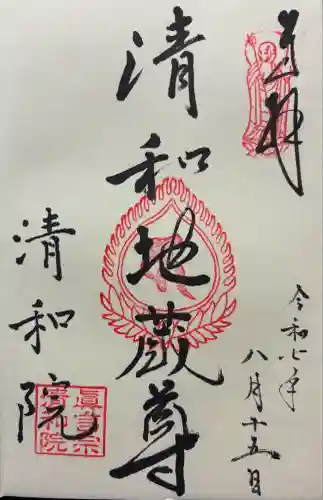 奉拝
清和地蔵尊
令和七年
八月十五日
清和院
真言宗
清和院